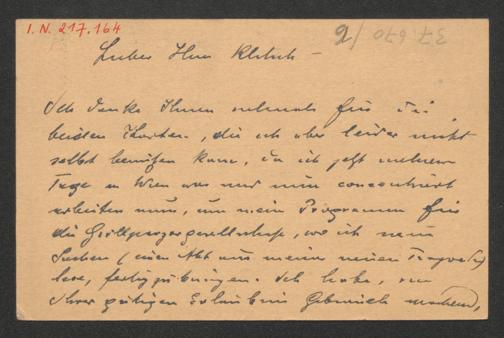 I.N. 217.164
37.670
Lieber Herr
Ich danke Ihnen vielmals für die
beiden Karten, die ich aber leider nicht
selbst benützen kann, da ich jetzt mehrere
Tage in Wien war und nun concentriert
arbeiten muss, um mein Programm für
die Grillparzergesellschaft, wo ich neue
Sachen (einen Akt aus meiner neuen
lese, fertigzubringen. Ich habe, von
Ihrer gütigen Erlaubnis Gebrauch machend,